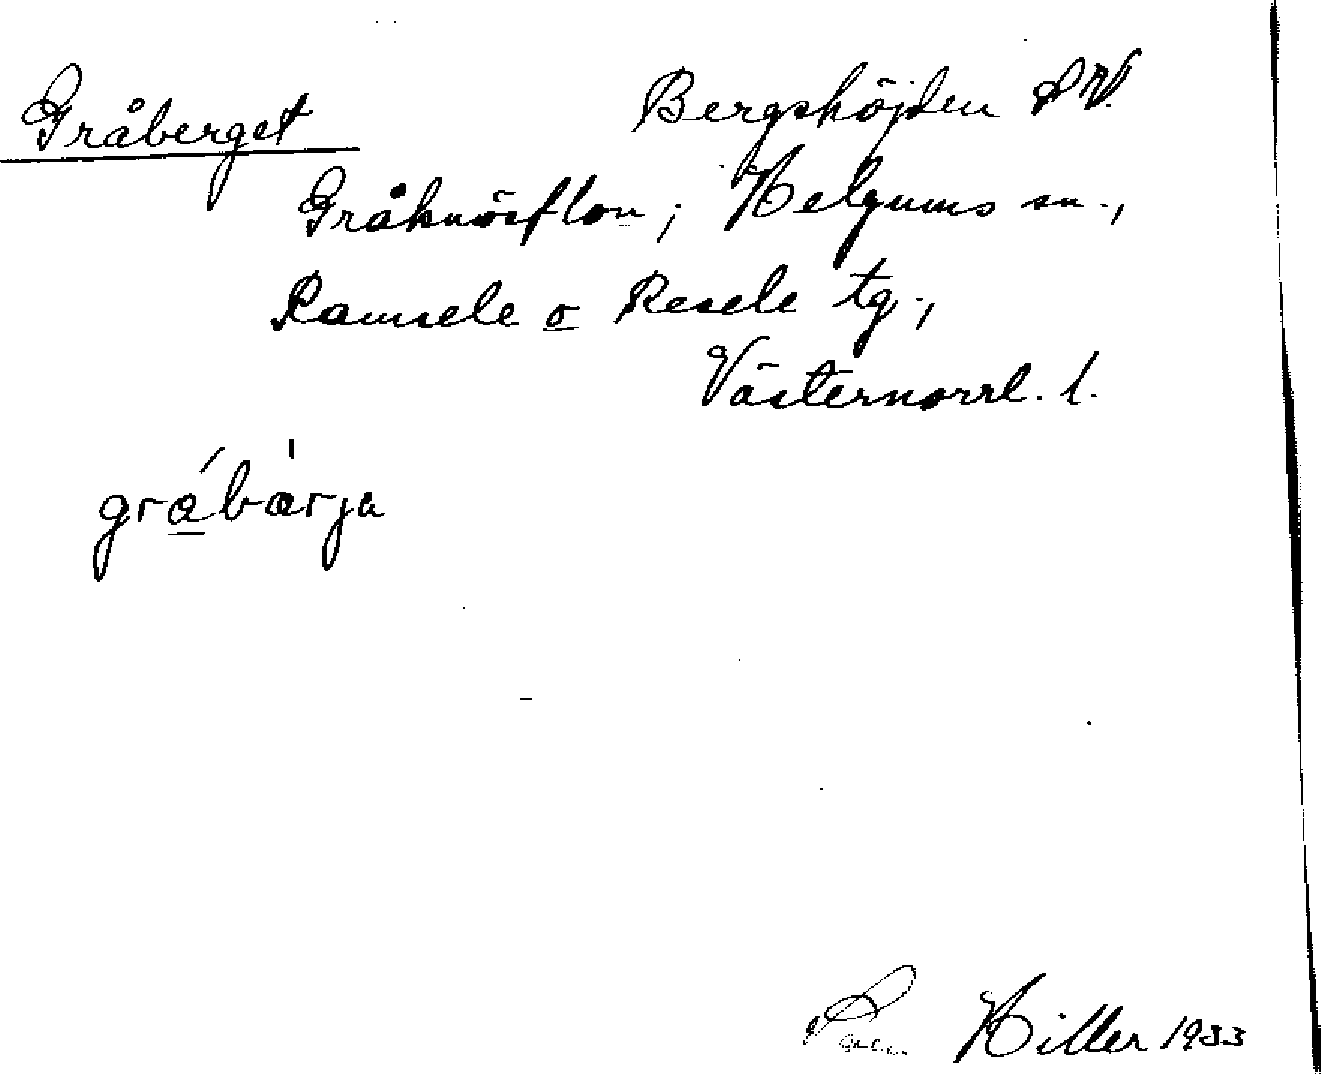 Gråberget Bergshöjden SV.
Gråknösflon; Helgums sn.,
Ramsele o Resele tg.,
Västernorrl. l.
gråbärja
Hiller 1933